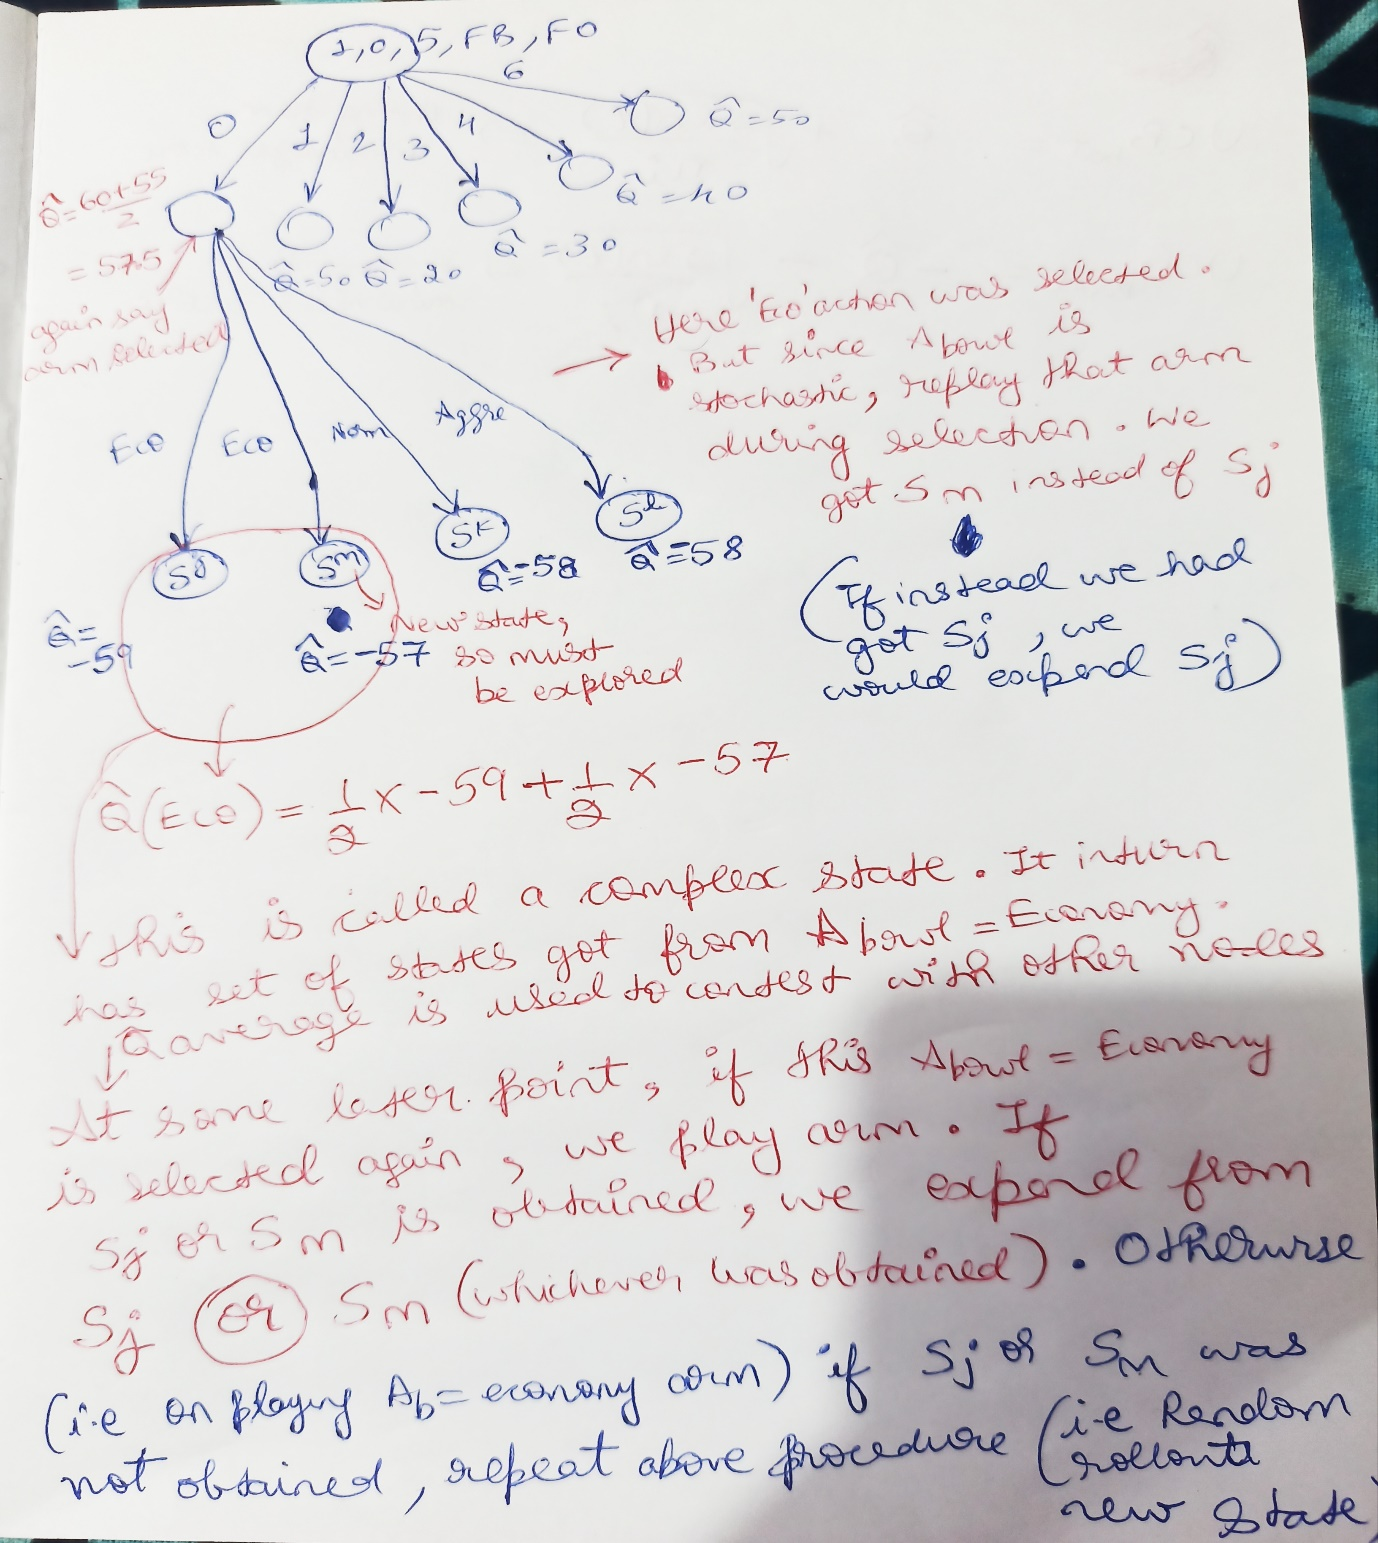 1,0,5,FB,FO
0
1
2
3
4
6
Q̂=50
Q̂=40
Q̂=30
Q̂=50 Q̂=20
Q̂=60+55
2
=57.5
again say
arm selected
Eco
Eco
Nom
Aggre
Here 'Eco' action was selected.
But since Abowl is
stochastic, replay that arm
during selection. We
got Sm instead of Sj
Sj
Sm
Sk
Sl
Q̂=-58
Q̂=-58
Q̂=
-59
Q̂=-57
New state,
so must
be explored
(If instead we had
got Sj, we
would expand Sj)
Q̂(Eco) = 1/2 x -59 + 1/2 x -57
This is called a complex state. It inturn
has set of states got from Abowl = Economy.
Q̂ average is used to contest with other nodes
At some later point, if this Abowl = Economy
is selected again, we play arm. If
Sj or Sm is obtained, we expand from
Sj or Sm (whichever was obtained). Otherwise
(i.e on playing Ab=economy arm) if Sj or Sm was
not obtained, repeat above procedure (i-e Random
rollout
new state)